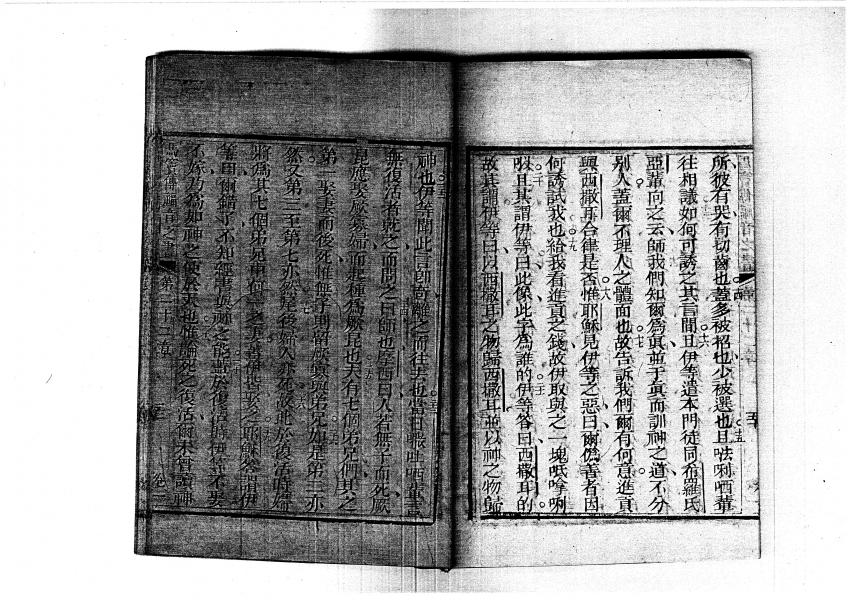 所彼有哭有切齒也蓋多被招也少被選也且㕵唎哂輩
往相議如何可誘之其言間且伊等遣本門徒同希羅氏
亞輩向之云師我們知爾為真並于真而訓神之道不分
別人蓋爾不理人之體面也故告訴我們爾有何意進貢
與西撒再合律是否惟耶穌見伊等之惡曰爾偽善者因
何誘試我也給我看進貢之錢故伊取與之一塊呧嗱唎
吺且其謂伊等曰此像此字為誰的伊等答曰西撒耳的
故其謂伊等曰以西撒耳之物歸西撒耳並以神之物歸
神也伊等聞此言則奇離之而往去也當日
無復活者就之而問之曰師也摩西曰人若無子而死厥
昆應娶厥妻婦而起種為厥昆也夫有七個弟兄們其之
第一娶妻而後死惟無子則留厥妻與弟兄如是第二亦
然又第三至第七亦然隨後婦人亦死故此於復活時婦
將為其七個弟兄中何一之妻蓋伊皆娶之耶穌答謂伊
等曰爾錯了不知經書與神之能蓋於復活時伊等不娶
不嫁乃為如神之使於天也惟論死之復活爾未曾讀神
第二十二章